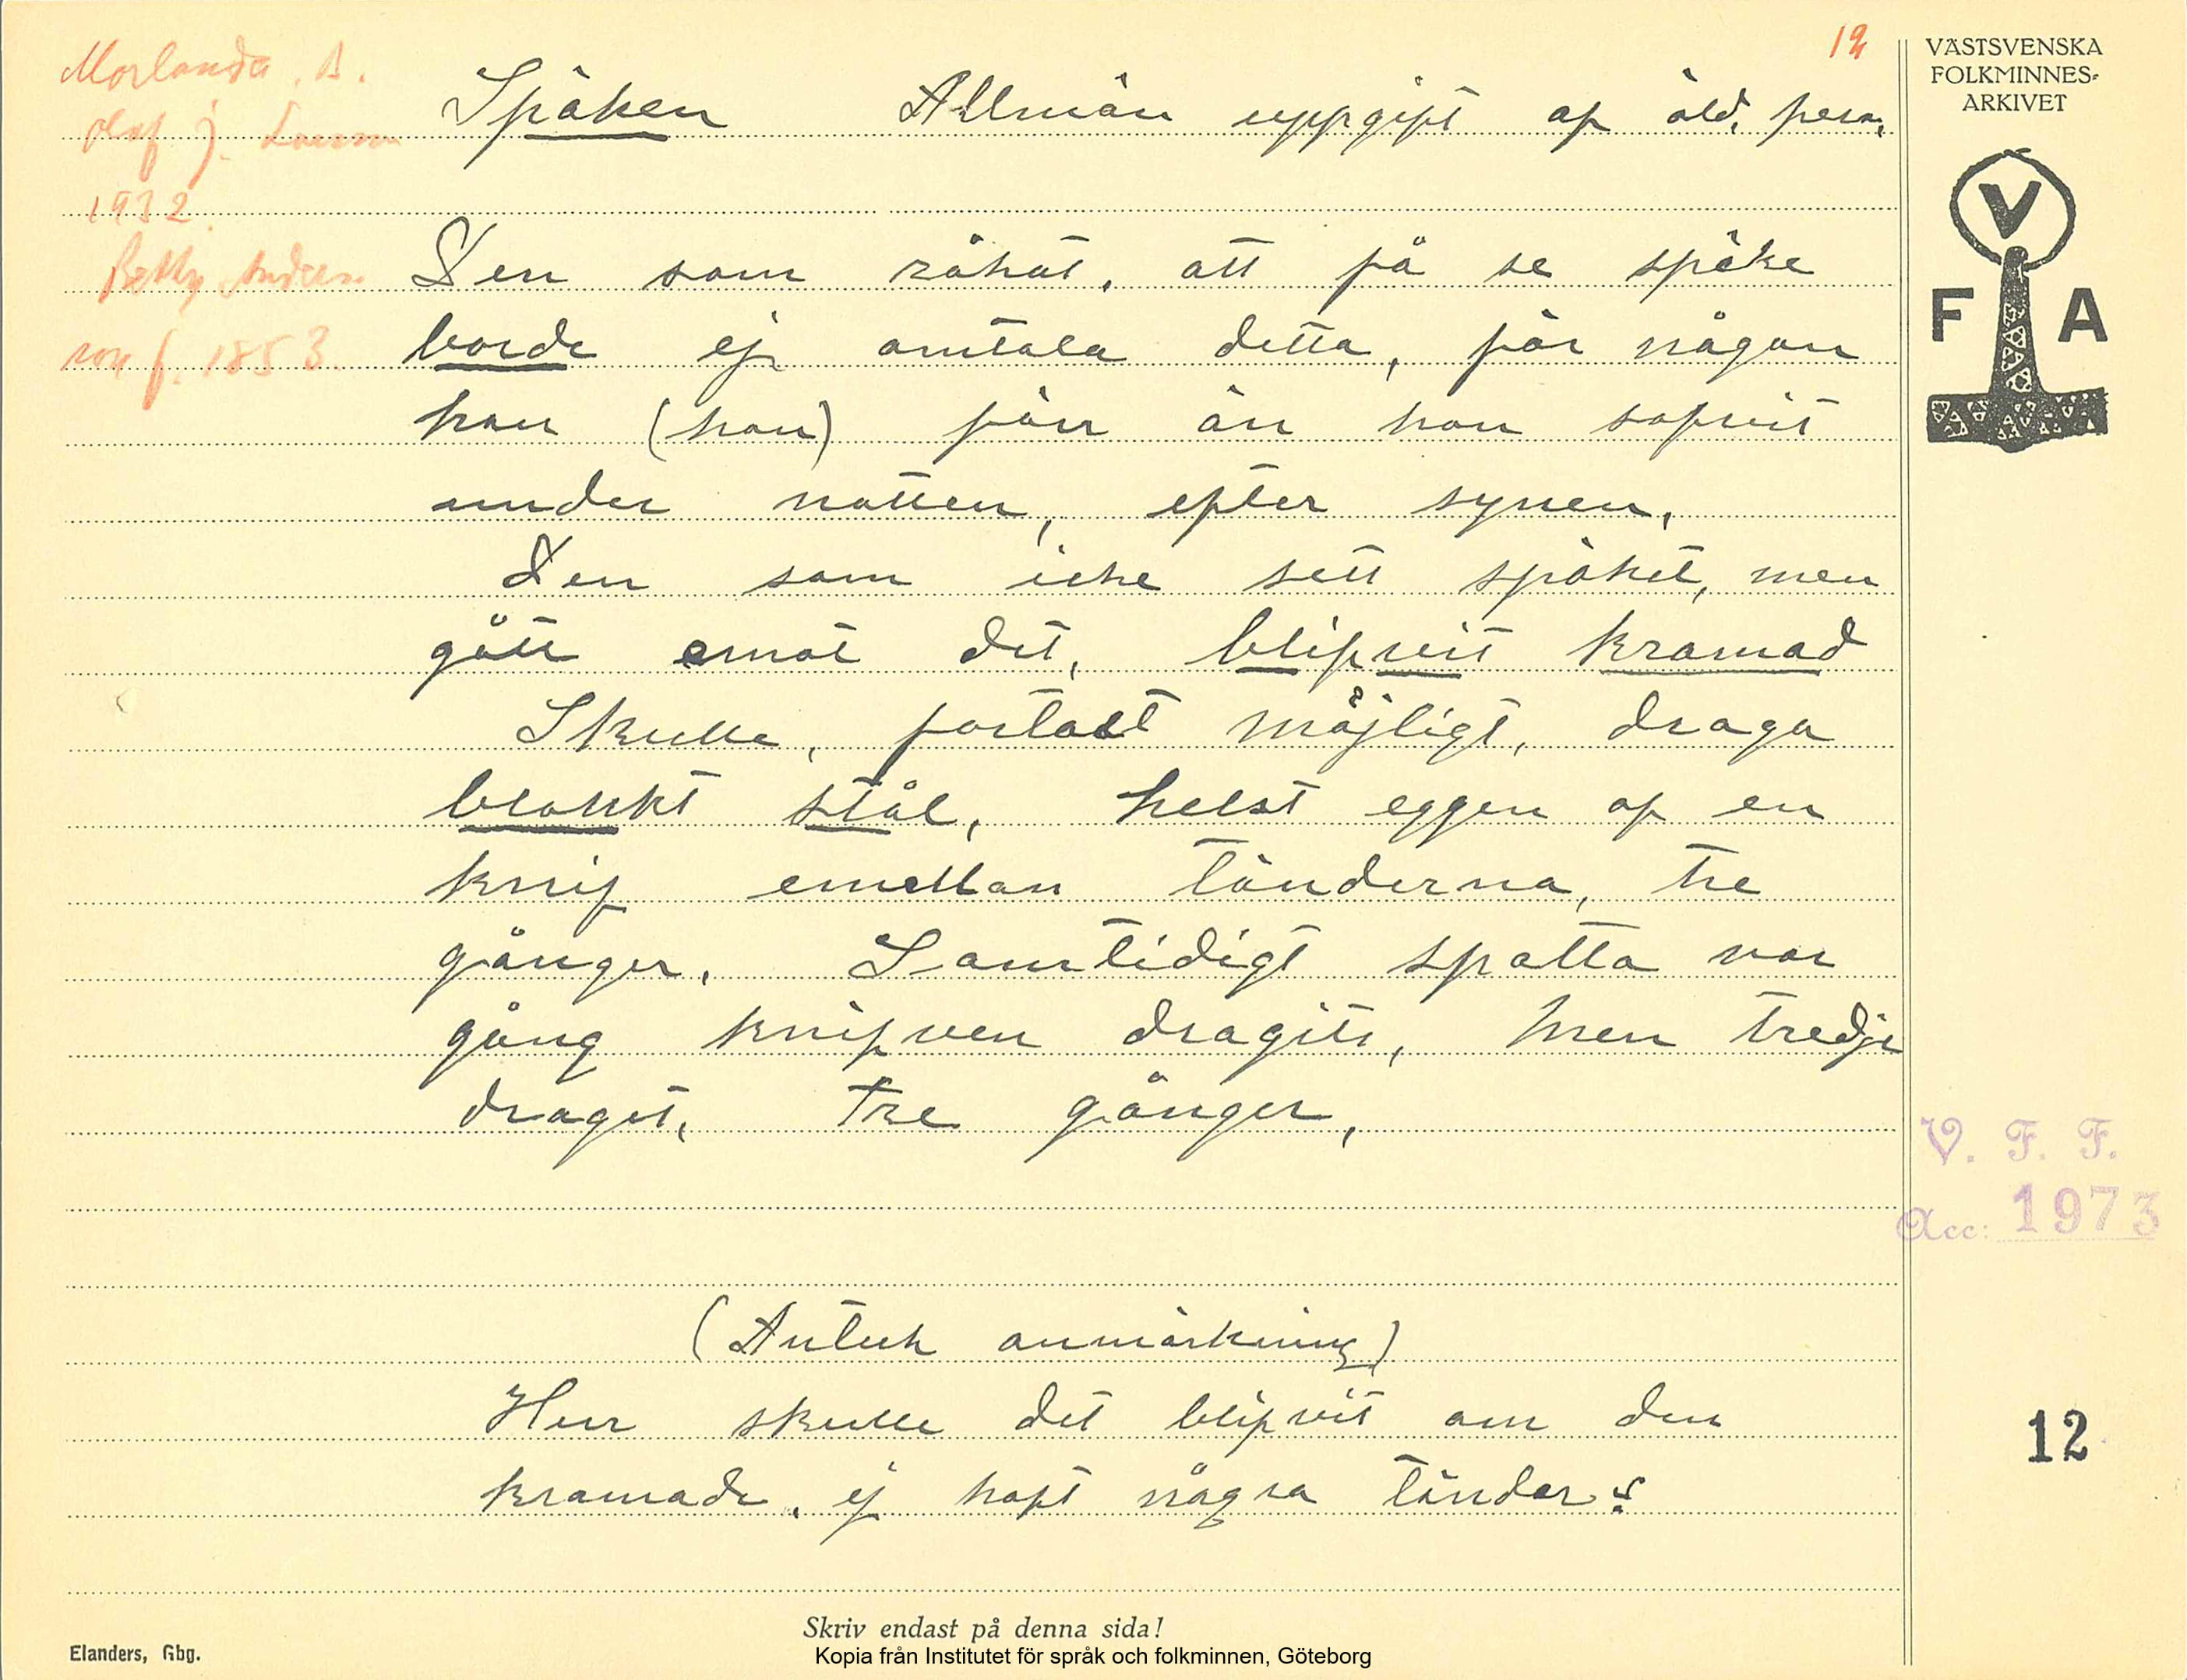 12
VÄSTSVENSKA
FOLKMINNES-
ARKIVET
V
F A
Morlanda. B.
Olof J. Larsson
1932.
Betty Anders-
son f. 1853.
Spöken Allmän uppgift af äld. pers.
Den som råkat, att få se spöke
borde ej omtala detta, för någon
han (hon) förr än hon sofvit
under natten, efter synen,
Den som icke sett spöket, men
gått emot det, blifvit kramad
Skulle, fortast möjligt, draga
blankt stål, helst eggen af en
knif emellan tänderna, tre
gånger. Samtidigt spotta var
gång knifven dragits, men tredje
draget, tre gånger,
(Anteck anmärkning)
Hur skulle det blifvit om den
kramade, ej haft några tänder?
V. F. F.
Acc: 1973
12
Skriv endast på denna sida!
Elanders, Gbg.
Kopia från Institutet för språk och folkminnen, Göteborg